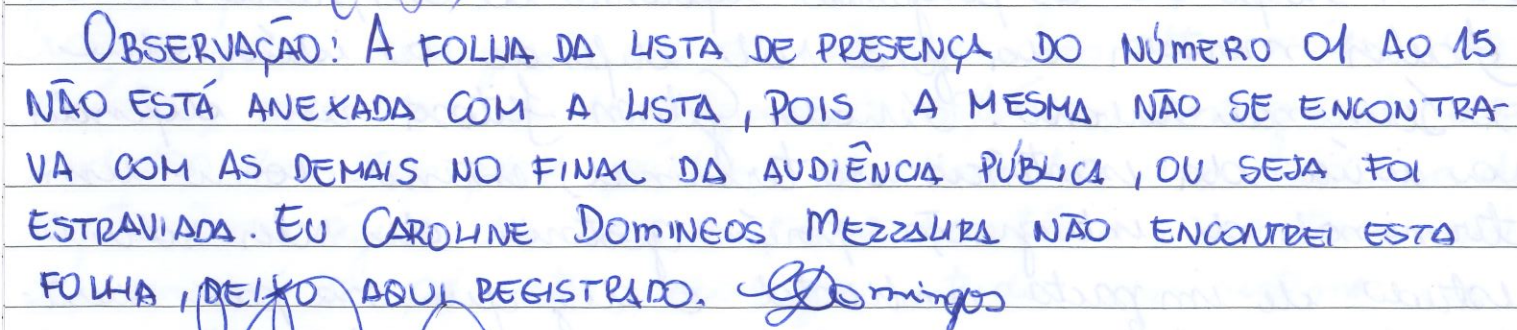 OBSERVAÇÃO: A FOLHA DA LISTA DE PRESENÇA DO NÚMERO 01 AO 15
NÃO ESTÁ ANEXADA COM A LISTA, POIS A MESMA NÃO SE ENCONTRA-
VA COM AS DEMAIS NO FINAL DA AUDIÊNCIA PÚBLICA, OU SEJA FOI
ESTRAVIADA. EU CAROLINE DOMINGOS MEZZALIRA NÃO ENCONTREI ESTA
FOLHA, DEIXO AQUI REGISTRADO. CDomingos